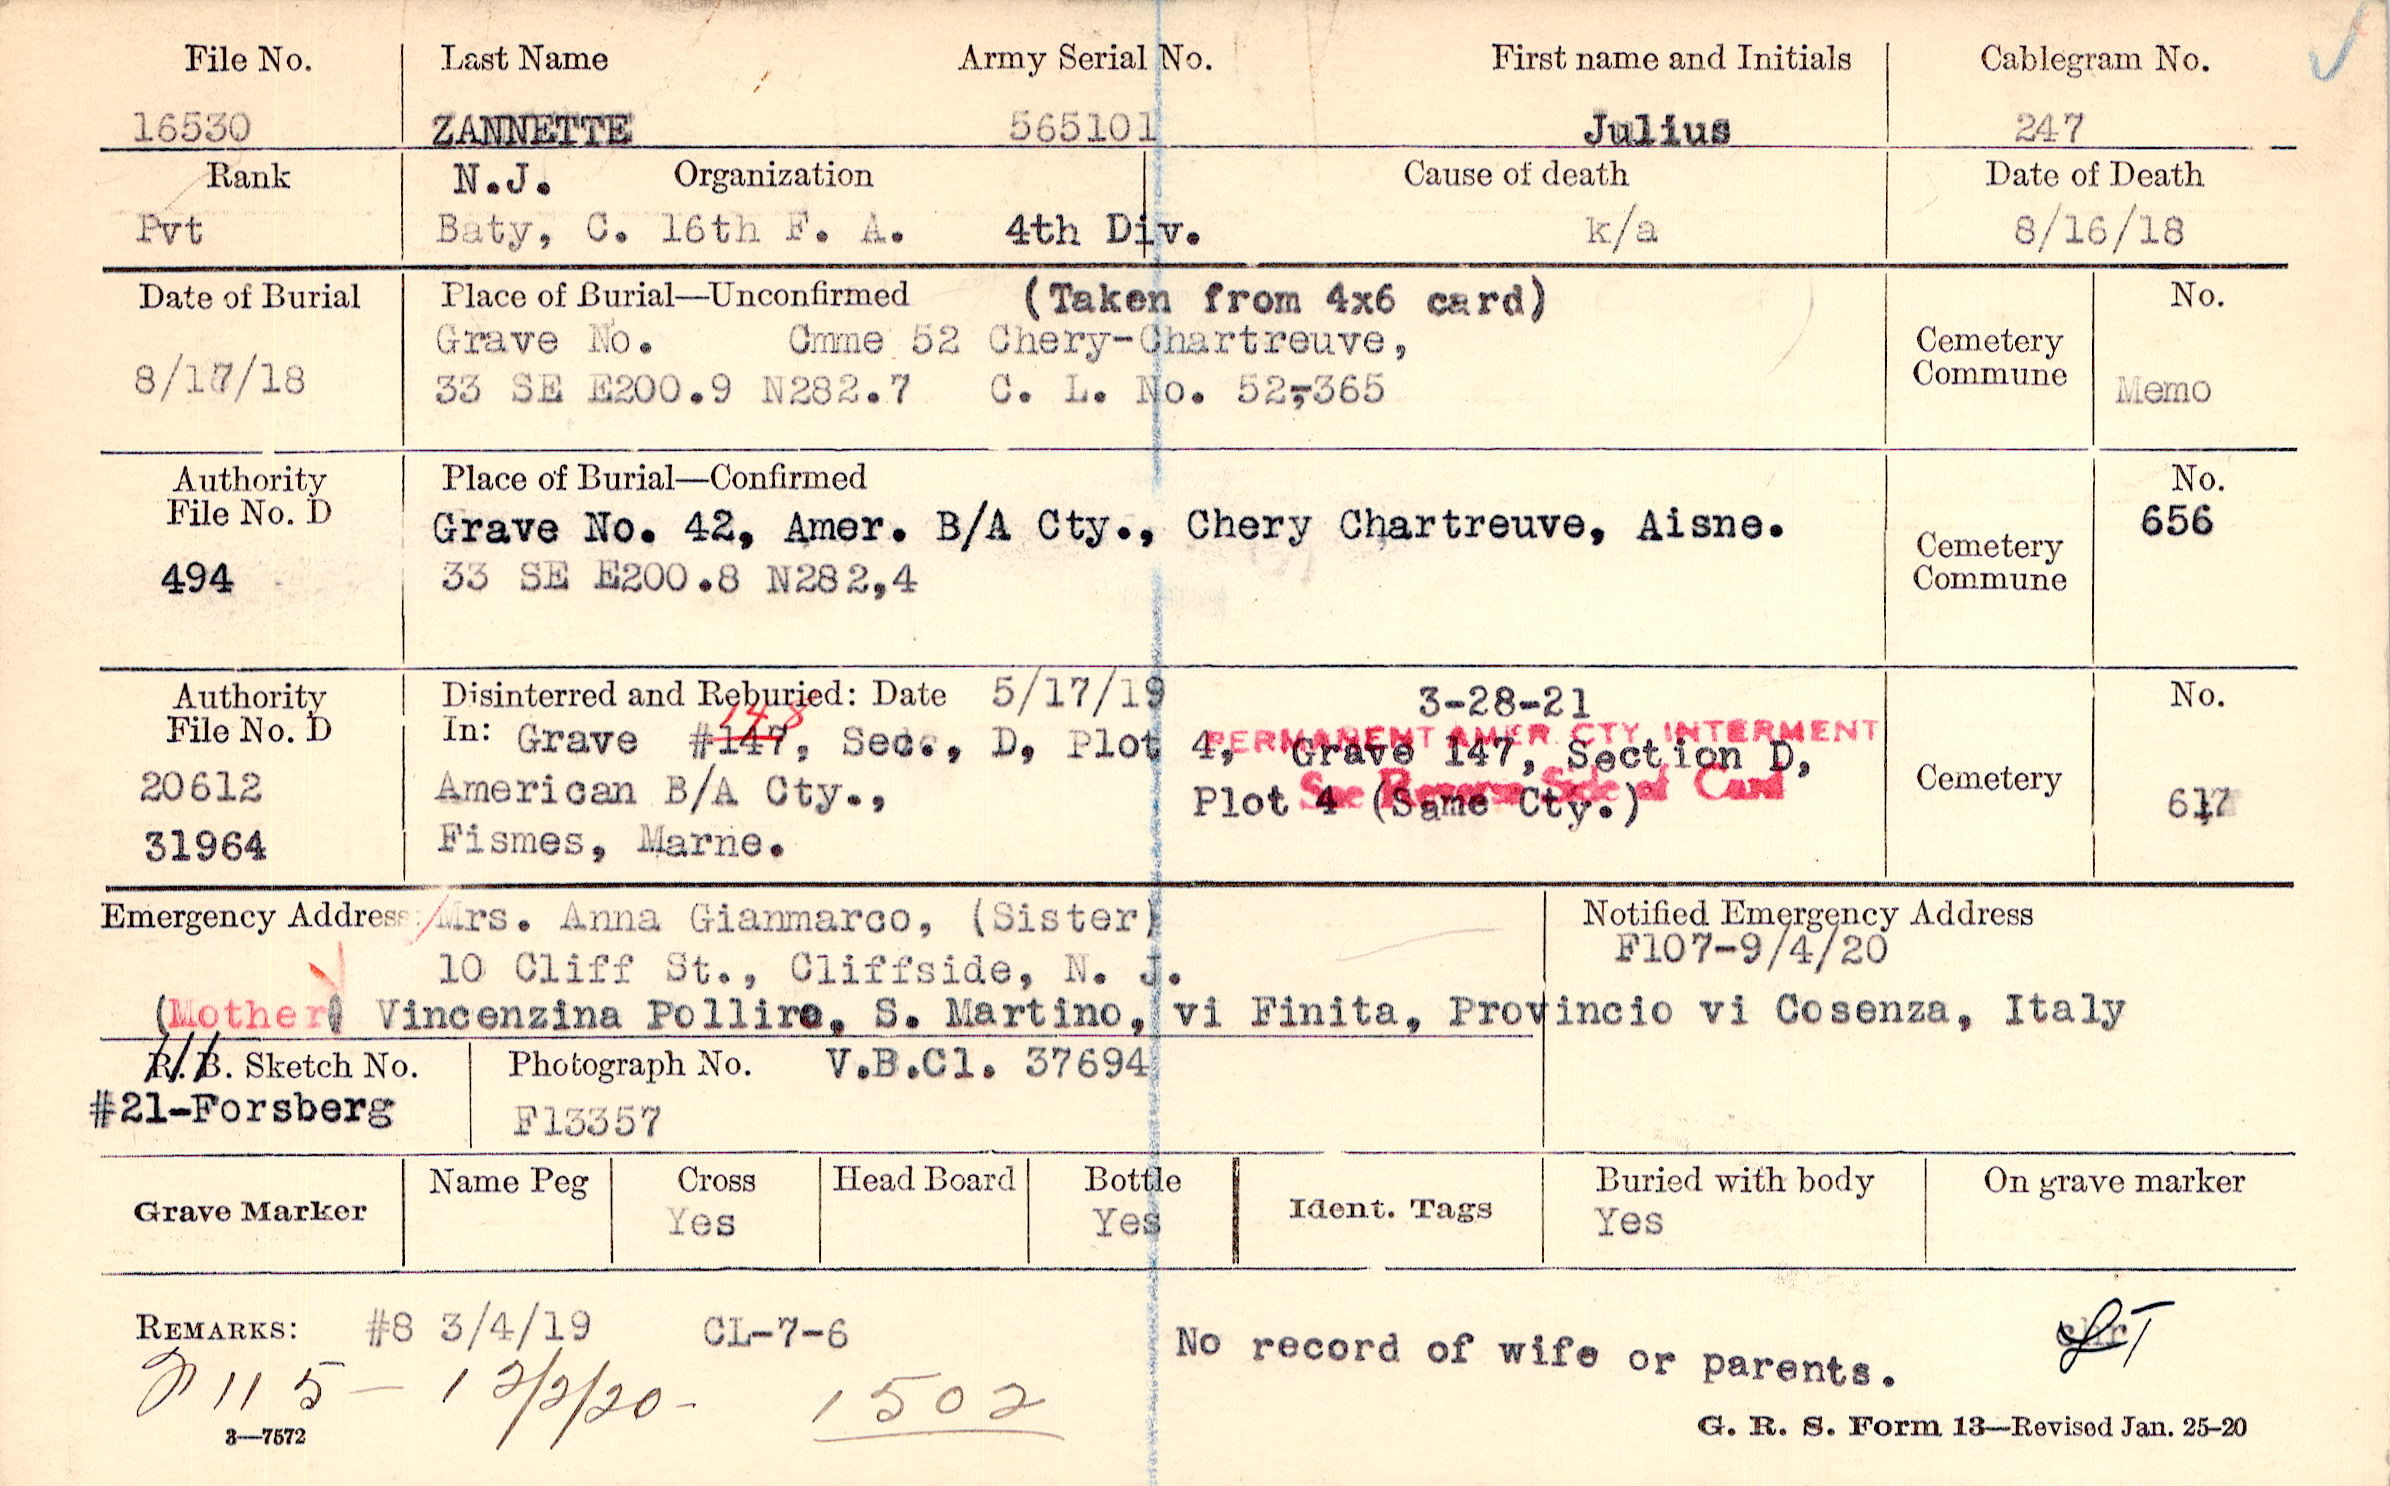 File No. Last Name Army Serial No. First name and Initials Cablegram No.
16530 ZANNETTE 565101 Julius 247
Rank N.J. Organization Cause of death Date of Death
Pvt Baty, C. 16th F. A. 4th Div. k/a 8/16/18
Date of Burial Place of Burial—Unconfirmed (Taken from 4x6 card) No.
Grave No. Cmme 52 Chery-Chartreuve, Cemetery
8/17/18 33 SE E200.9 N282.7 C. L. No. 52-365 Commune Memo
Authority Place of Burial—Confirmed No.
File No. D Grave No. 42, Amer. B/A Cty., Chery Chartreuve, Aisne. 656
494 33 SE E200.8 N282,4 Cemetery
Commune
Authority Disinterred and Reburied: Date 5/17/19 3-28-21 No.
148
File No. D In: Grave #147, Sec., D, Plot 4, PERMANENT AMER. CTY. INTERMENT
Grave 147, Section D,
20612 American B/A Cty., See Reverse Side of Card Cemetery
Plot 4 (Same Cty.) 617
31964 Fismes, Marne.
Emergency Address: Mrs. Anna Gianmarco, (Sister) Notified Emergency Address
10 Cliff St., Cliffside, N. J. F107-9/4/20
(Mother) Vincenzina Pollire, S. Martino, vi Finita, Provincio vi Cosenza, Italy
R. B. Sketch No. Photograph No. V.B.Cl. 37694
#21-Forsberg F13357
Grave Marker Name Peg Cross Head Board Bottle Ident. Tags Buried with body On grave marker
Yes Yes Yes
REMARKS: #8 3/4/19 CL-7-6 No record of wife or parents.
115 - 12/2/20 - 1502
3—7572 G. R. S. Form 13—Revised Jan. 25-20